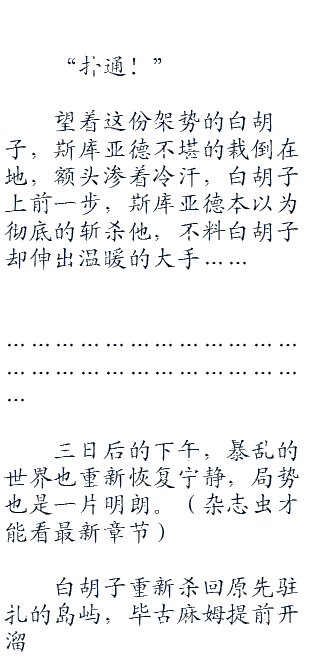 “扑通！”
望着这份架势的白胡
子，斯库亚德不堪的栽倒在
地，额头渗着冷汗，白胡子
上前一步，斯库亚德本以为
彻底的斩杀他，不料白胡子
却伸出温暖的大手……
………………………………
………………………………
…
三日后的下午，暴乱的
世界也重新恢复宁静，局势
也是一片明朗。（杂志虫才
能看最新章节）
白胡子重新杀回原先驻
扎的岛屿，毕古麻姆提前开
溜